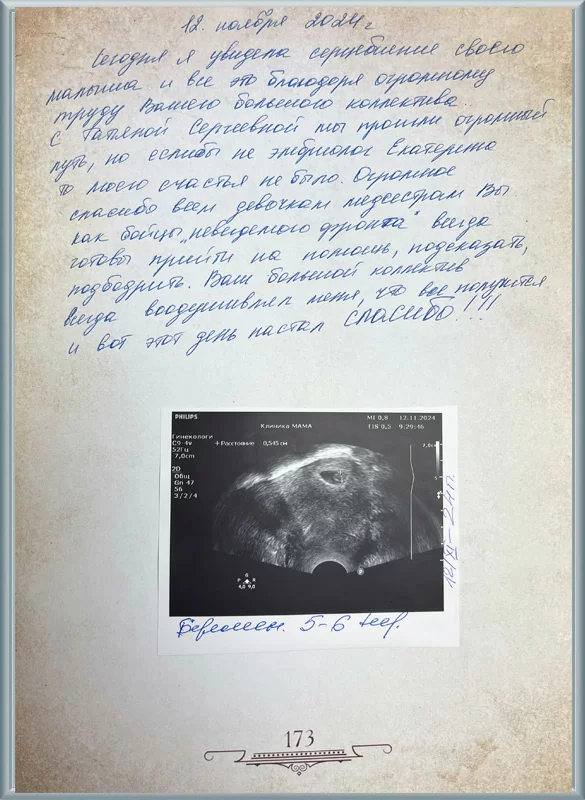 12. ноября 2024 г
Сегодня я увидела сердцебиение своего
малыша и все это благодаря огромному
труду Вашего большого коллектива.
С Татьяной Сергеевной мы прошли огромный
путь, но если бы не эмбриолог Екатерина
то моего счастья не было. Огромное
спасибо всем девочкам медсестрам Вы
как бойцы „невидемого фронта" всегда
готовы прийти на помощь, подсказать,
подбодрить. Ваш большой коллектив
всегда воодушевлял меня, что все получится
и вот этот день настал СПАСИБО!!!
PHILIPS
MI 0,8 12.11.2024
Клиника МАМА
TIS 0,5 9:29:46
Гинекологи
C9-4v
52Гц
7,0см
+ Расстояние 0,545 см
7,0
2D
Общ
Gn 47
56
3/2/4
5
G
P R
4,0 9,0
12/XI-24г.
Беремен. 5-6 нед.
173